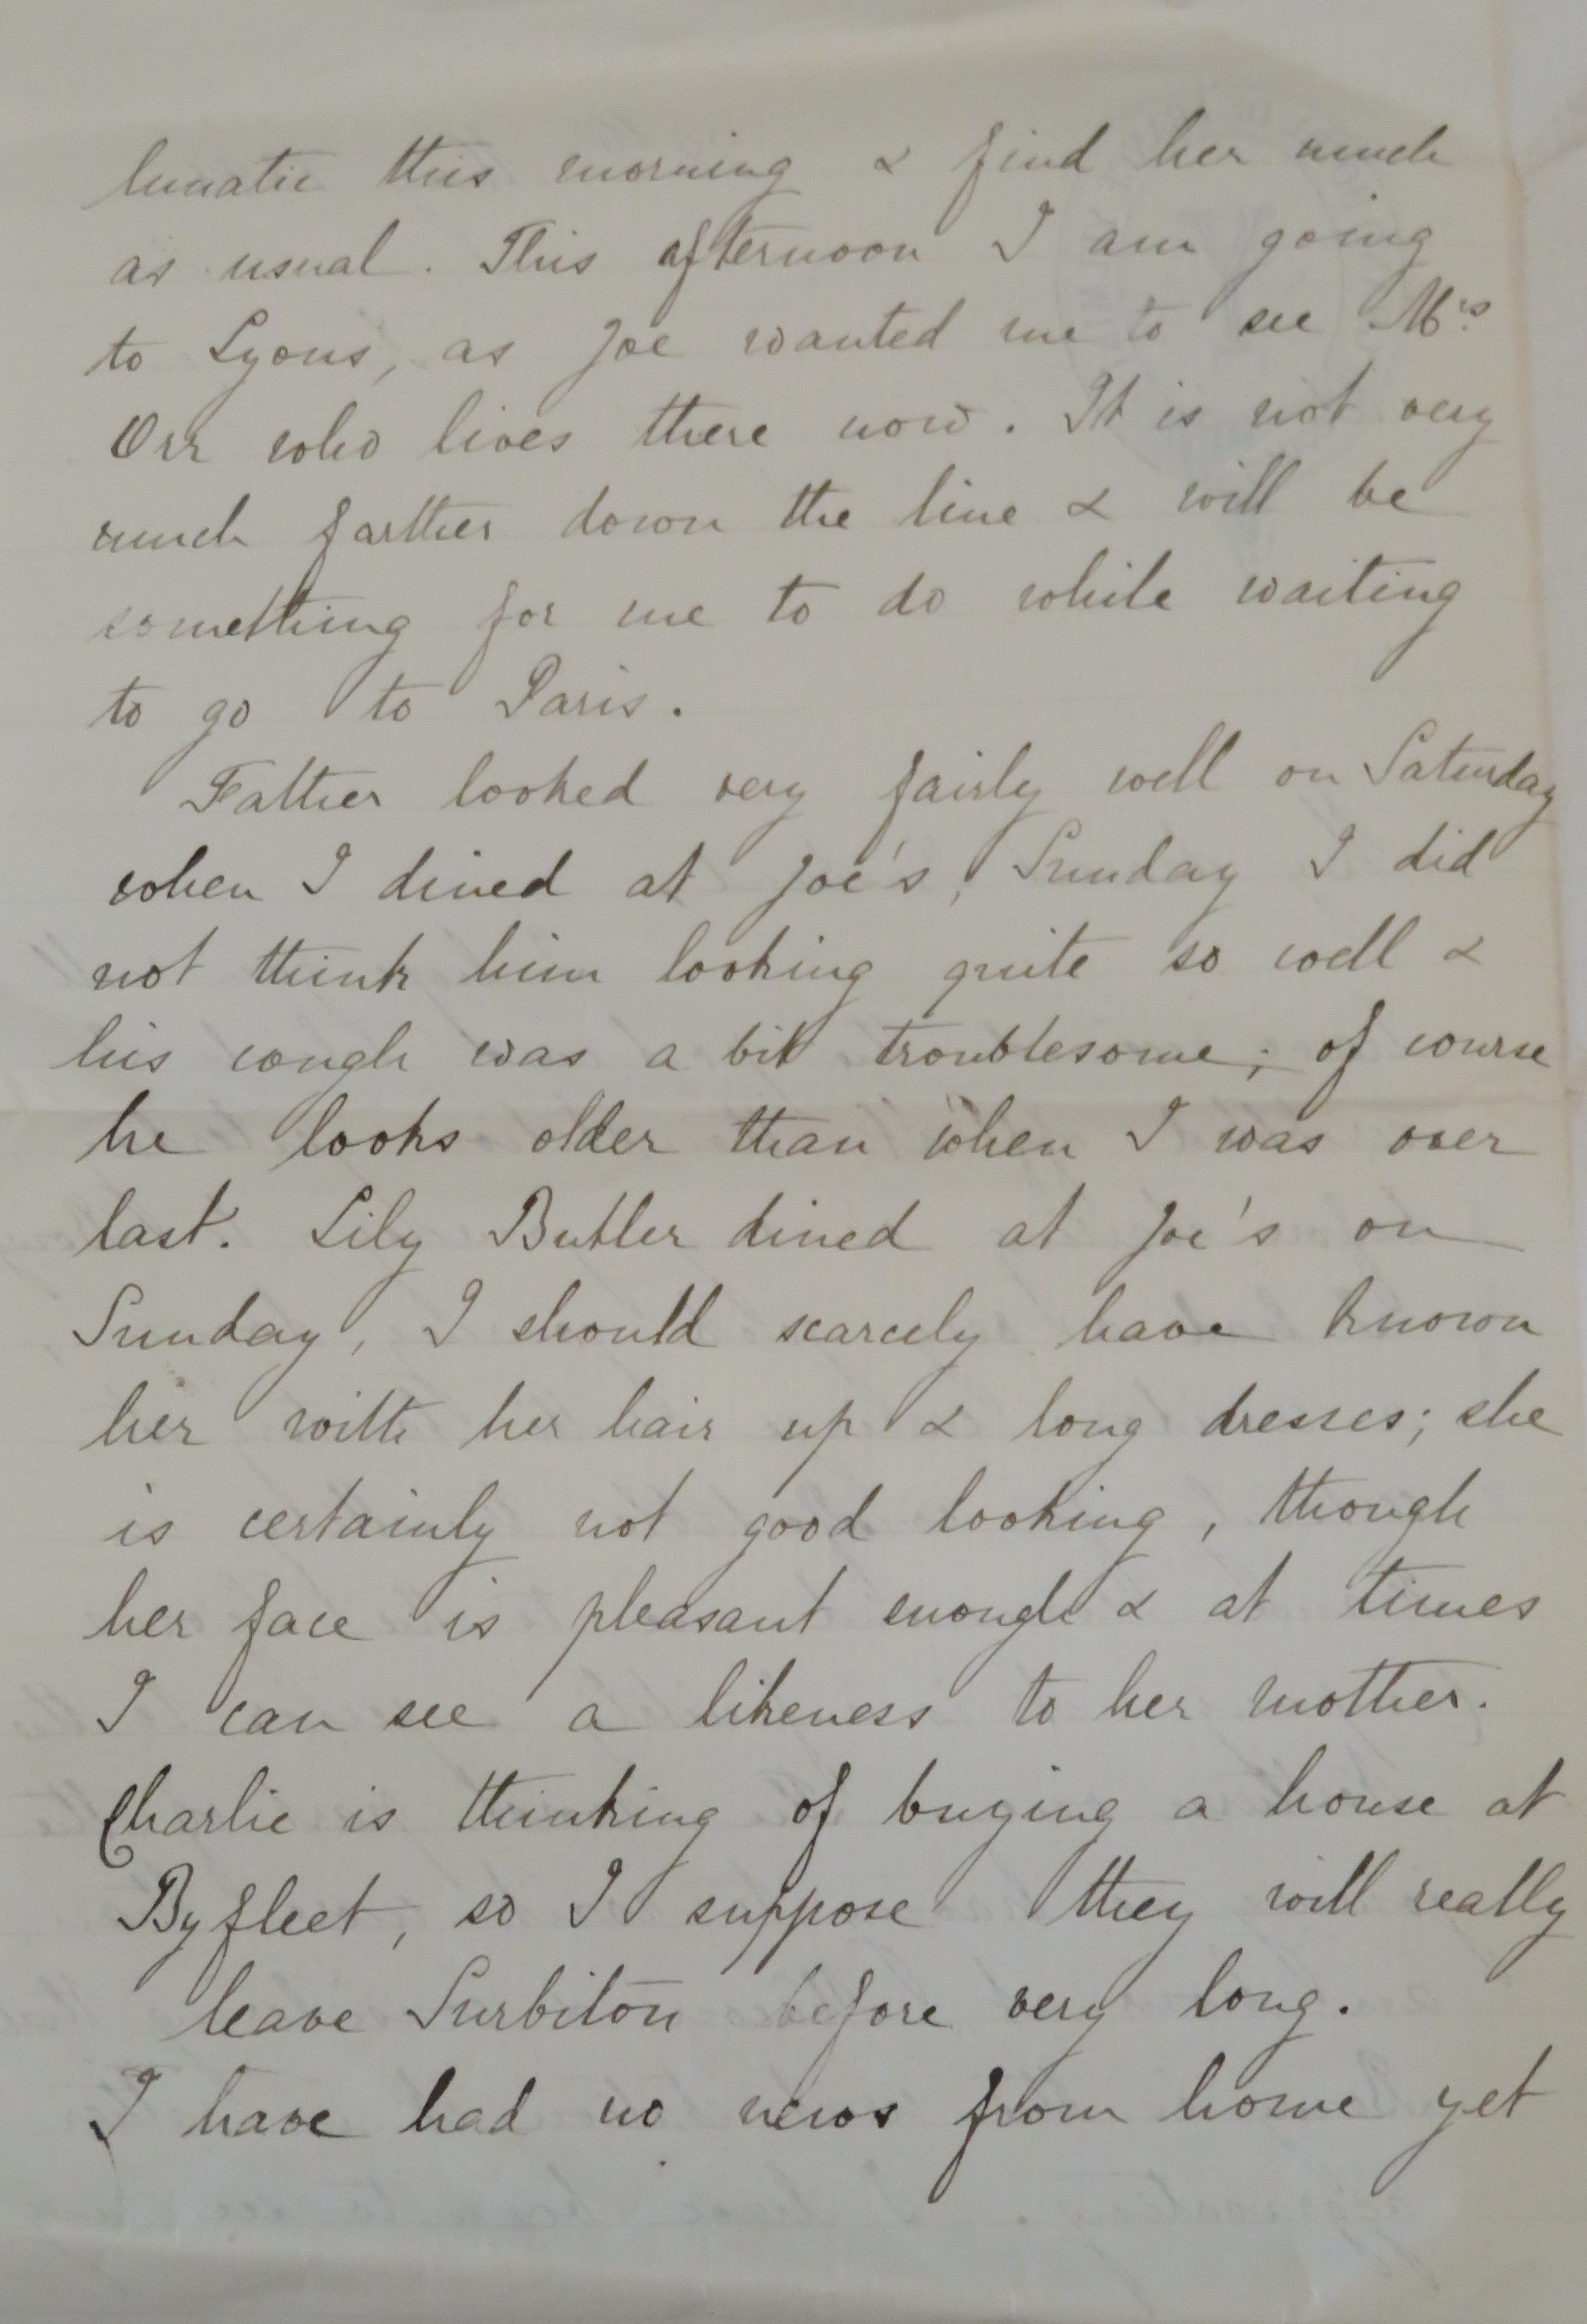 lunatic this morning & find her much
as usual. This afternoon I am going
to Lyons, as Joe wanted me to see Mrs.
Orr who lives there now. It is not very
much farther down the line & will be
something for me to do while waiting
to go to Paris.
Father looked very fairly well on Saturday
when I dined at Joe's, Sunday I did
not think him looking quite so well &
his cough was a bit troublesome; of course
he looks older than when I was over
last. Lily Butler dined at Joe's on
Sunday, I should scarcely have known
her with her hair up & long dresses; she
is certainly not good looking, though
her face is pleasant enough & at times
I can see a likeness to her mother.
Charlie is thinking of buying a house at
Byfleet, so I suppose they will really
leave Surbiton before very long.
I have had no news from home yet